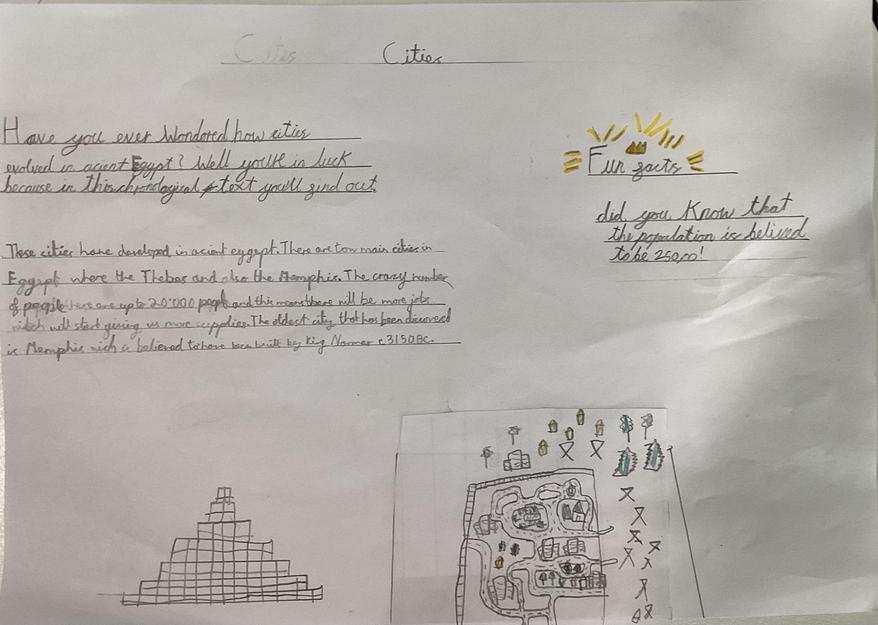 Cities
Cities
Have you ever Wondored how cities
evolved in acient Egypt? Well you're in luck
because in this chronological text you'll find out.
Fun facts
did you Know that
the population is belived
to be 250,00!
These cities have developed in acient eygept. There are tow main cities in
Egypt where the Thebas and also the Memphis. The crazy number
of people there are up to 20'000 people and this means there will be more jobs
which will start giving us more supplies. The oldest city that has been discovered
is Memphis wich is believed to have been built by King Narmer c 3150 BC.